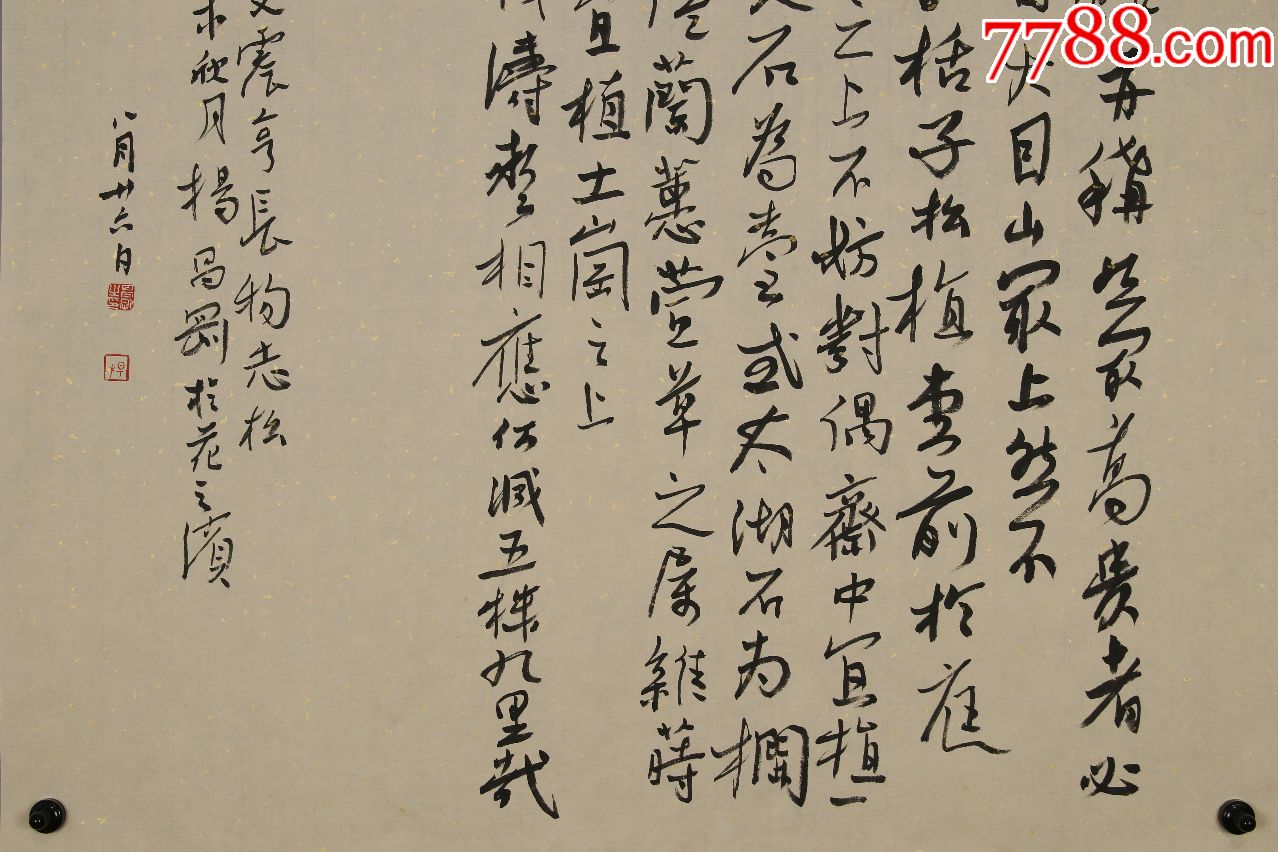 並稱然最高貴者必
天目山最上然不
栝子松植堂前於庭
之上不妨對偶齋中宜植一
石為臺或太湖石為欄
蘭蕙萱草之屬雜蒔
宜植土崗之上
濤聲相應何減五株九里哉
文震亨長物志松
秋月楊昌剛於花之濱
八月廿六日
7788.com